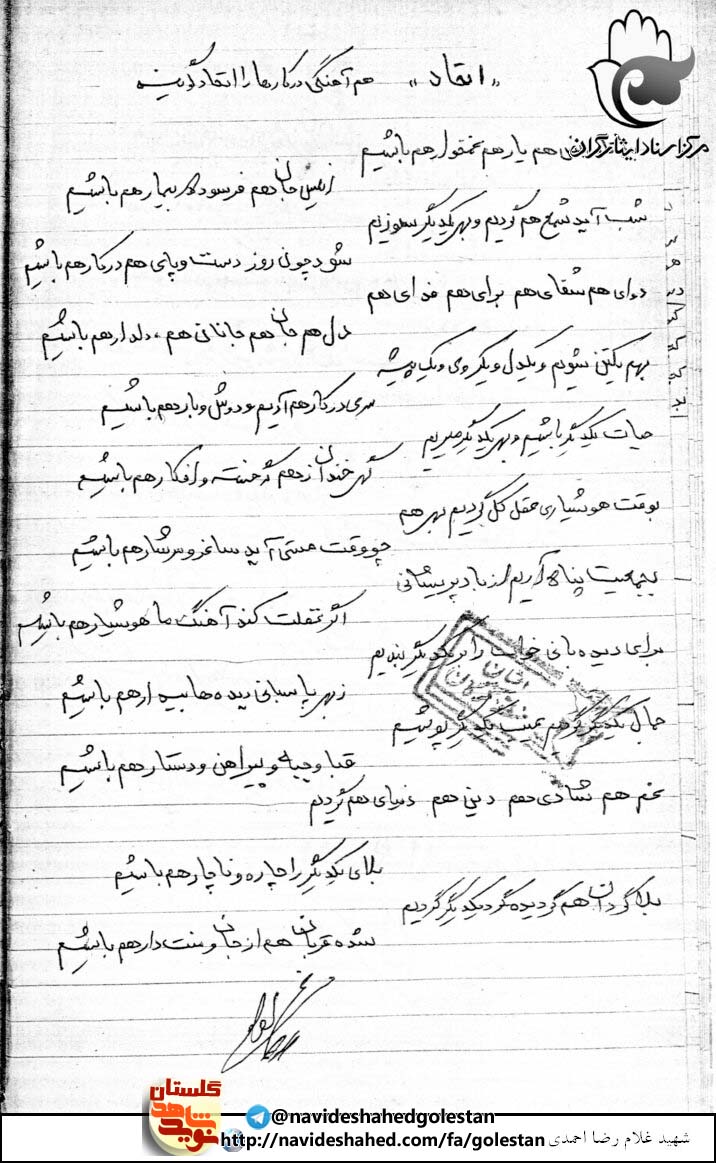 «اتحاد» هم آهنگی در کارها را اتحاد گویند
مرکز اسناد ایثارگران
هم یار هم غمخوار هم باشیم
انیس جان هم فرسوده بیمار هم باشیم
شب آید شمع هم گردیم و بهر یکدیگر سوزیم
شود چون روز دست و پای هم در کار هم باشیم
دوای هم شفای هم برای هم فدای هم
دل هم جان هم جانان هم، دلدار هم باشیم
بهم یکتن شویم و یکدل و یکروی و یک پیشه
سری در کار هم آریم و دوش و بار هم باشیم
حیات یکدیگر باشیم و بهر یکدیگر میریم
گهی خندان ز هم گه خسته و افکار هم باشیم
بوقت هوشیاری عقل کل گردیم بهر هم
چو وقت مستی آید ساغر و سرشار هم باشیم
بجمعیت پناه آریم از باد پریشانی
اگر غفلت کند آهنگ ما هوشیار هم باشیم
برای دیده بانی خواب را بر یکدیگر بندیم
ز بهر پاسبانی دیده ها بیدار هم باشیم
جمال یکدیگر گردیم عیب یکدیگر پوشیم
قبا و جبه و پیراهن و دستار هم باشیم
غم هم شادی هم دین هم دنیای هم گردیم
بلای یکدیگر را چاره و ناچار هم باشیم
بلا گردان هم گردیده گرد یکدیگر گردیم
شده قربان هم از جان و منت دار هم باشیم
گلستان
نوید شاهد
@navideshahedgolestan
http://navideshahed.com/fa/golestan شهید غلام رضا احمدی